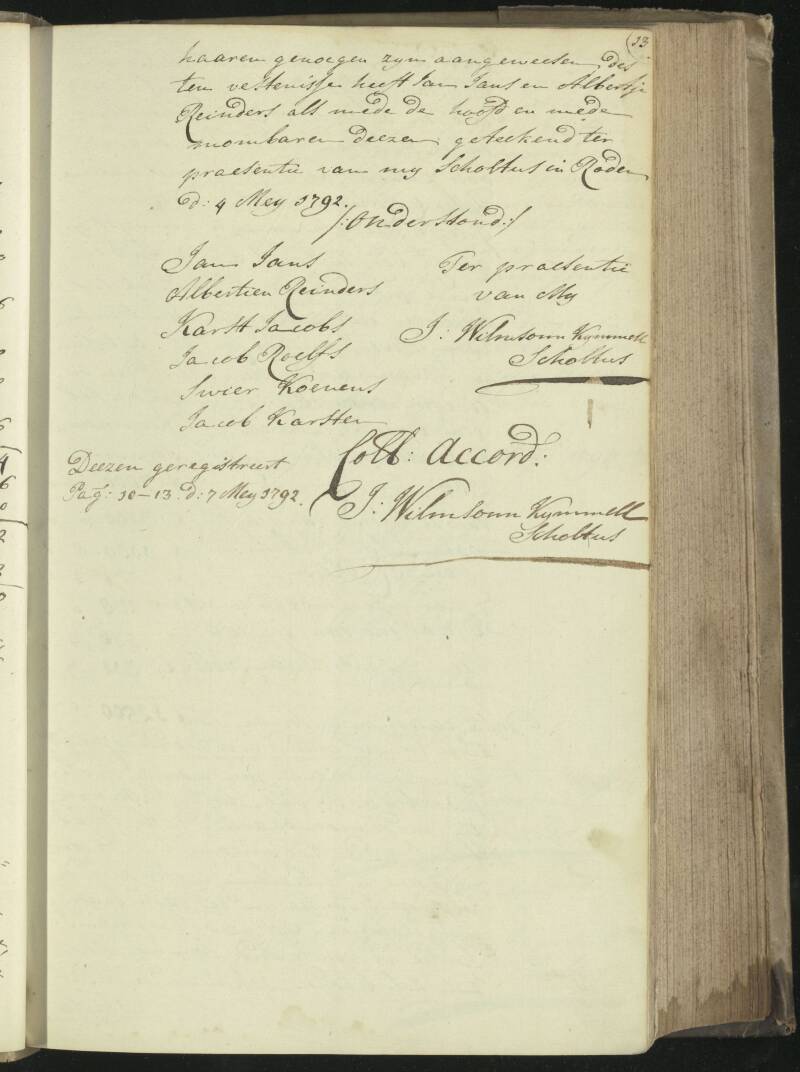 13
haaren genoegen zyn aangeweesen, des
ten vestenisse heeft Jan Jans en Albertje
Reinders als mede de hooft en mede
mombaren deezen geteekend ter
praesentie van my Scholtus in Roden
d: 4 Mey 1792.
/:Onderstond:/
Jan Jans
Albertien Reinders
Karst Jacobs
Jacob Roelfs
Swier Koenens
Jacob Karsten
Ter praesentie
van My
J: Wilmsonn Kymmell
Scholtus
Deezen geregistreert
Pag: 10-13 d: 7 Mey 1792.
Coll: Accord:
J: Wilmsonn Kymmell
Scholtus